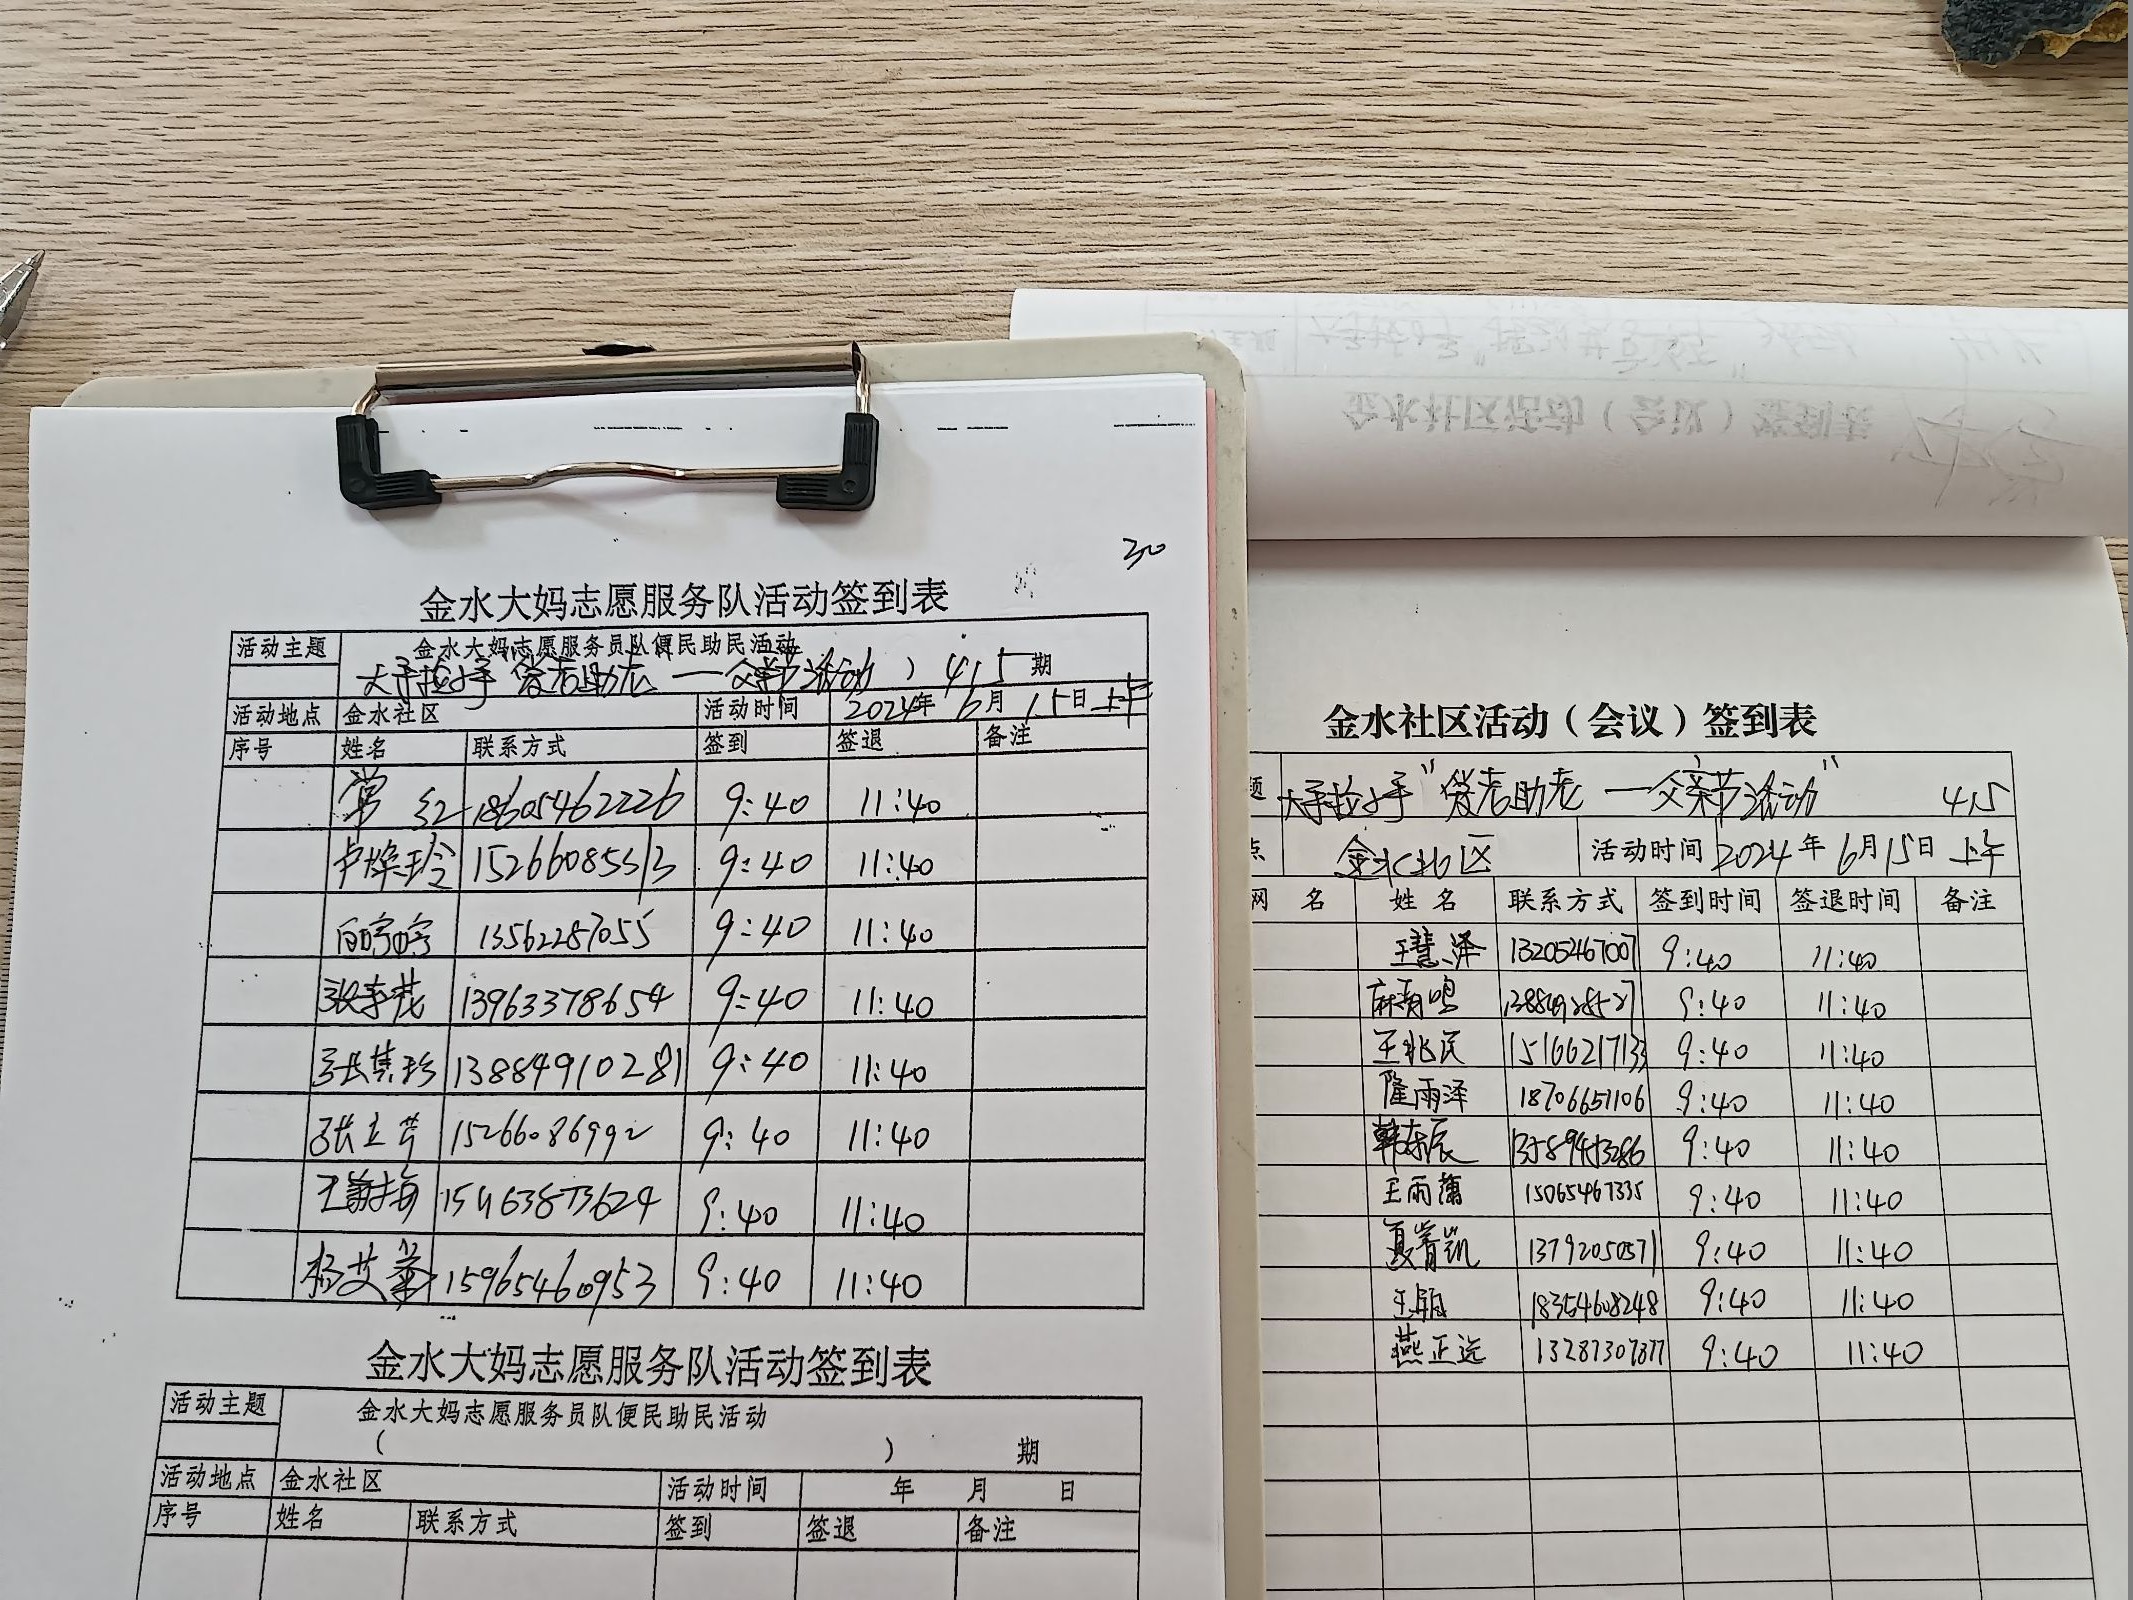 30
金水大妈志愿服务队活动签到表
活动主题 金水大妈志愿服务员队便民助民活动
大手拉小手"爱老助老 一父亲节活动 ） 415 期
活动地点 金水社区 活动时间 2024年 6月 15日 上午
序号 姓名 联系方式 签到 签退 备注
常 红 18605462226 9:40 11:40
卢焕玲 15266085313 9:40 11:40
白婷婷 13562287055 9:40 11:40
13963378654 9:40 11:40
张集珍 13884910281 9:40 11:40
张立芹 15266086992 9:40 11:40
王静梅 15463873624 9:40 11:40
杨艾 15965460953 9:40 11:40
金水大妈志愿服务队活动签到表
活动主题 金水大妈志愿服务员队便民助民活动
（ ） 期
活动地点 金水社区 活动时间 年 月 日
序号 姓名 联系方式 签到 签退 备注
金水社区活动（会议）签到表
题 大手拉小手"爱老助老 一父亲节活动" 415
点 金水社区 活动时间 2024年 6月15日 上午
网 名 姓 名 联系方式 签到时间 签退时间 备注
王慧泽 13205467007 9:40 11:40
9:40 11:40
王兆民 15166217133 9:40 11:40
隆雨泽 18706651106 9:40 11:40
韩东辰 13589453286 9:40 11:40
王雨蒲 15065467335 9:40 11:40
夏育凯 13792050571 9:40 11:40
18354608248 9:40 11:40
燕正远 13287307877 9:40 11:40